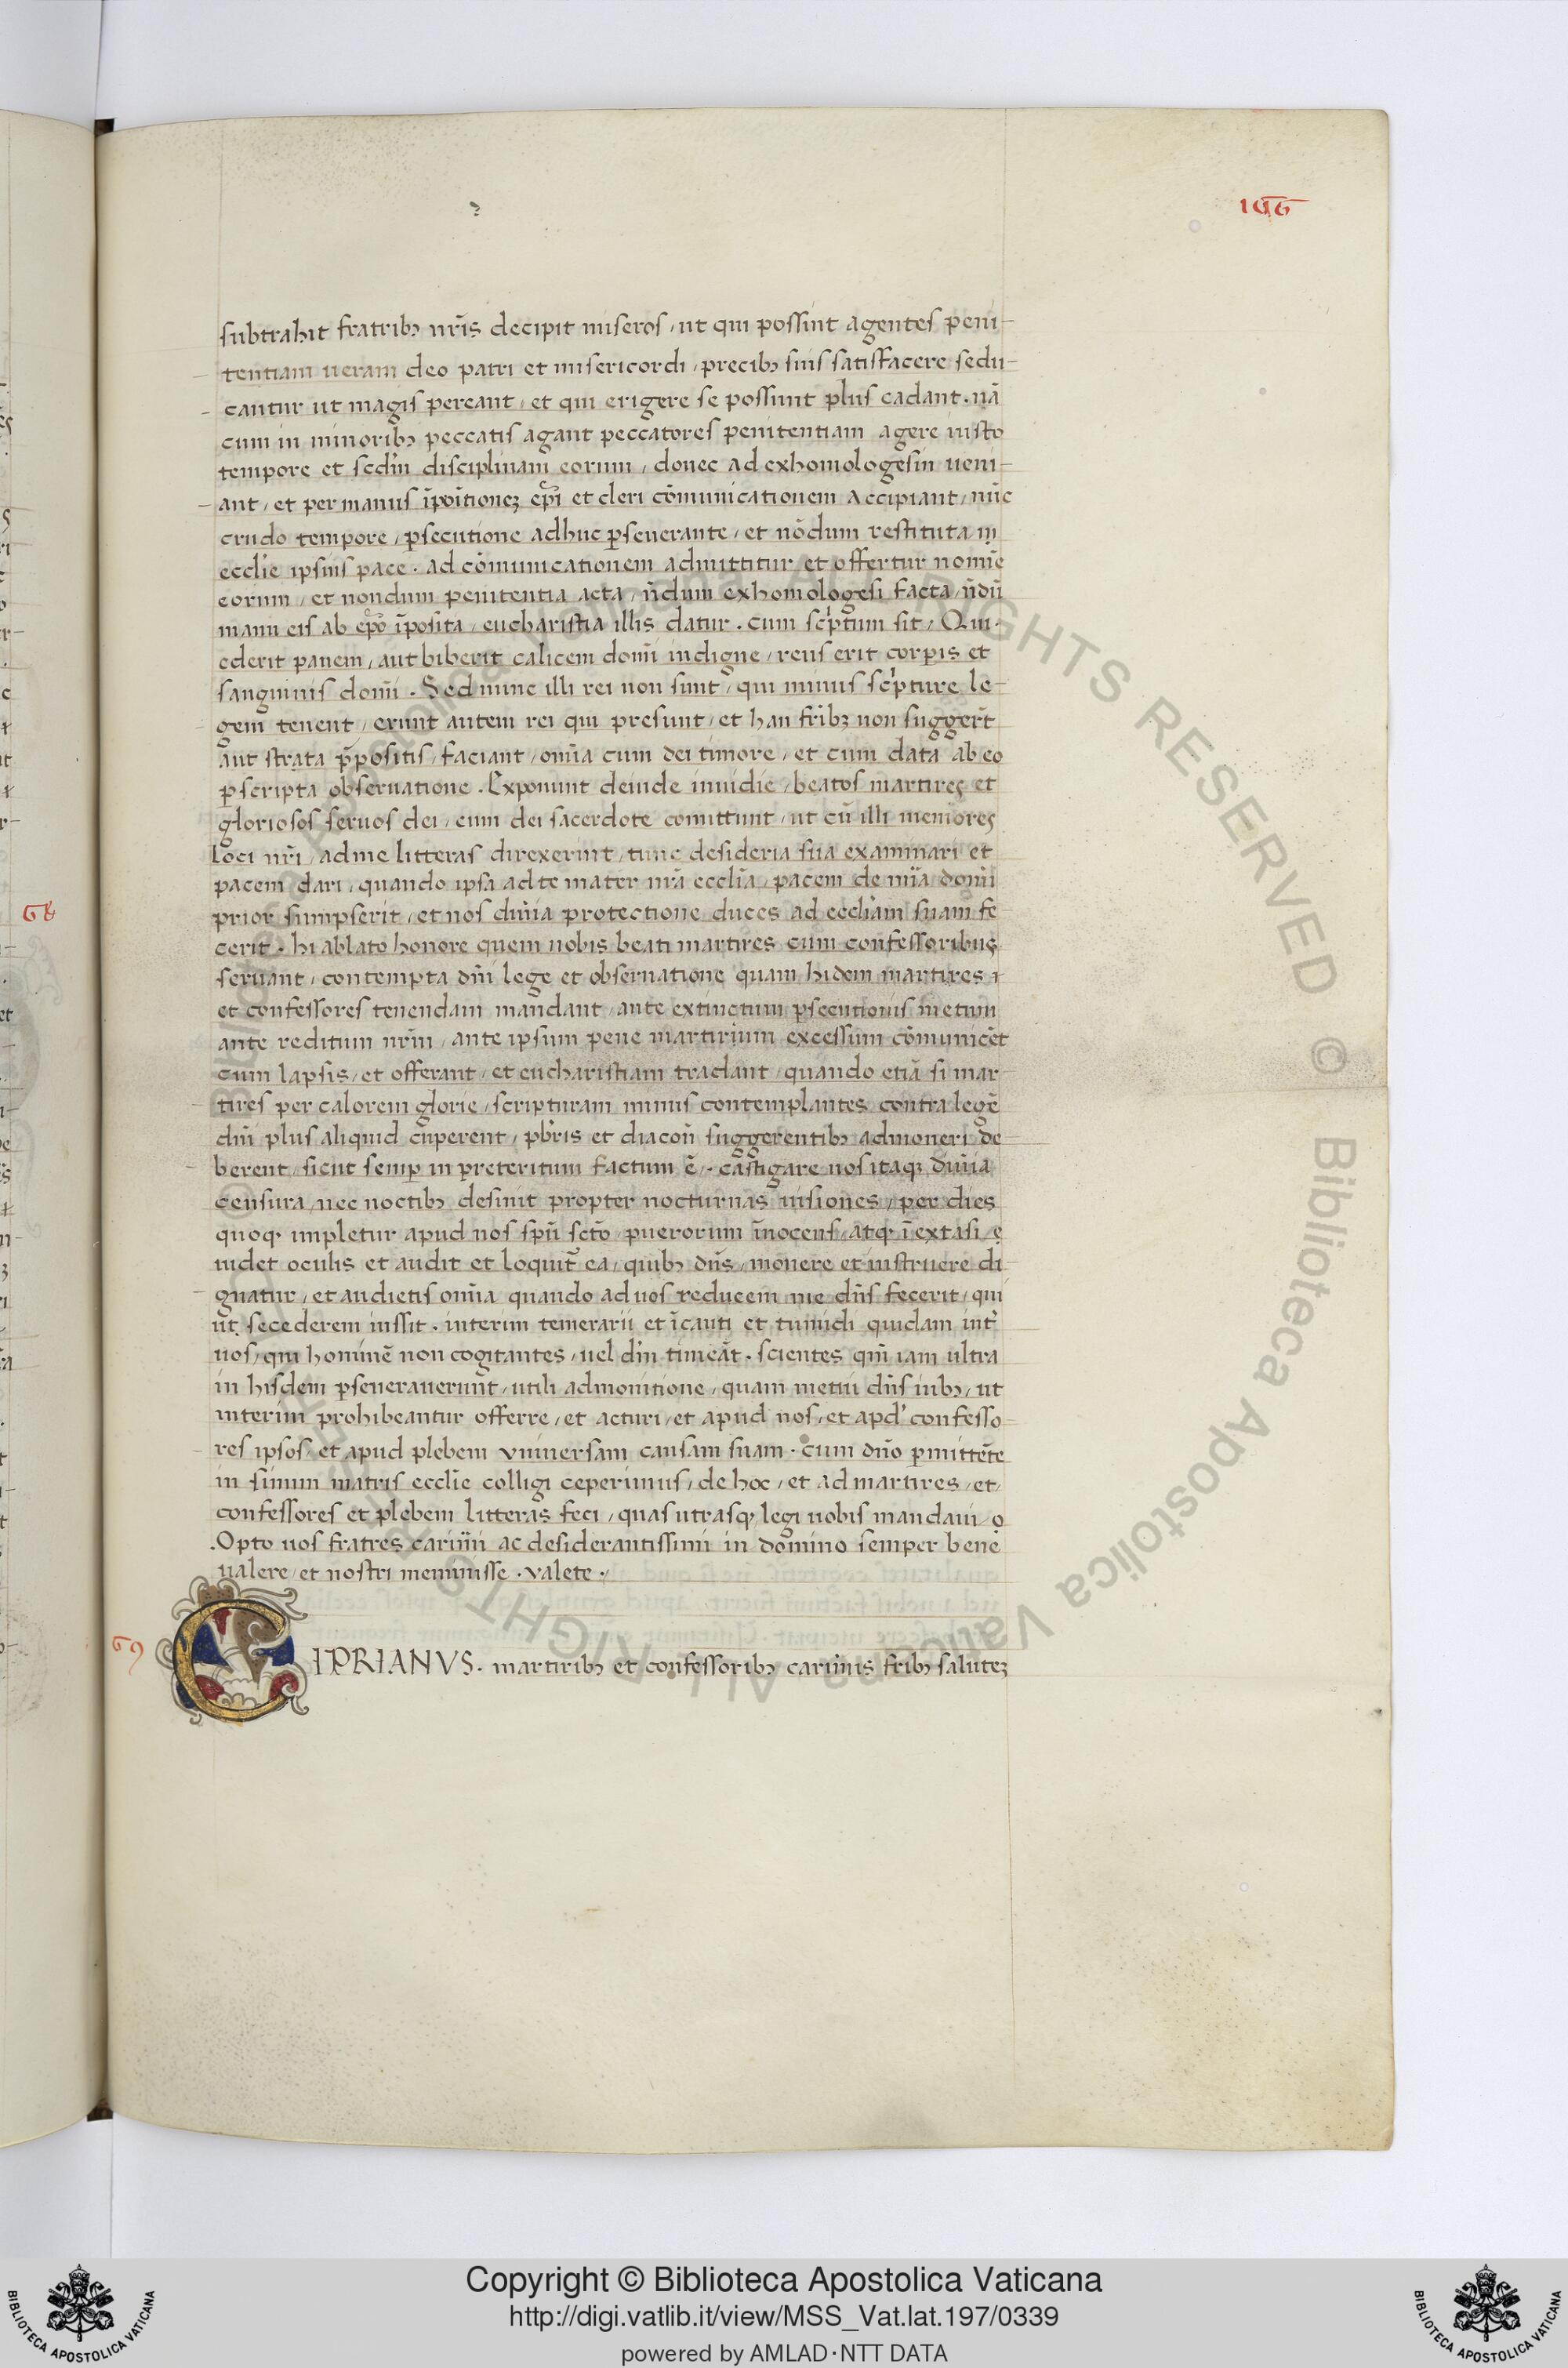 166
subtrahit fratribꝫ nr̄is decipit miseros, ut qui possint agentes peni-
tentiam ueram deo patri et misericordi, precibꝫ suis satisfacere sedu-
cantur ut magis pereant, et qui erigere se possunt plus cadant. nā
cum in minoribꝫ peccatis agant peccatores penitentiam agere iusto
tempore et scd'm disciplinam eorum, donec ad exhomologesin ueni-
ant, et per manus īpoītionez ep̄i et cleri cōmunicationem accipiant, nūc
crudo tempore, ꝑsecutione adhuc ꝑseuerante, et nōdum restituta in
eccl'ie ipsius pace. ad cōmunicationem admittitur et offertur nomīe
eorum, et nondum penitentia acta, n̄dum exhomologesi facta, n̄dū
manu eis ab ep̄o īposita, eucharistia illis datur. cum sc'ptum sit, Qui
ederit panem, aut biberit calicem dom̄i indigne, reus erit corꝑis et
sanguinis dom̄i. Sed nunc illi rei non sunt, qui minus sc'pture le-
gem tenent, erunt autem rei qui presunt, et han fr̄ibꝫ non sugger̄t
aut strata p̄positis, faciant, om̄ia cum dei timore, et cum data ab eo
ꝑscripta obseruatione. Exponunt deinde inuidie, beatos martires et
gloriosos seruos dei, cum dei sacerdote comittunt, ut cū illi memores
loci nr̄i, ad me litteras direxerint, tunc desideria sua examinari et
pacem dari, quando ipsa ad te mater nr̄a eccl̄ia, pacem de mīa dom̄i
prior sumpserit, et nos diuīa protectione duces ad eccl'iam suam fe
cerit. hi ablato honore quem nobis beati martires cum confessoribus
seruant, contempta dn̄i lege et obseruatione quam hidem martires
et confessores tenendam mandant, ante extinctum ꝑsecutionis metum
ante reditum nr̄m, ante ipsum pene martirium excessum cōmunicēt
cum lapsis, et offerant, et eucharistiam tradant, quando etiā si mar
tires per calorem glorie, scripturam minus contemplantes contra legē
dn̄i plus aliquid cuperent, pb'ris et diacon̄ suggerentibꝫ admoneri de
berent, sicut semꝑ in preteritum factum ē. castigare nos itaqꝫ diuīa
censura, nec noctibꝫ desinit propter nocturnas uisiones, per dies
quoqꝫ impletur apud nos spū sctō, puerorum īnocens, atqꝫ ī extasi, e
uidet oculis et audit et loquit̄ ea, quibꝫ dn̄s, monere et instruere di
gnatur, et audietis om̄ia quando ad uos reducem me dn̄s fecerit, qui
ut secederem iussit. interim temerarii et īcauti et tumidi quidam int'
uos, qui hominē non cogitantes, uel d'm timeāt. scientes qm̄ iam ultra
in hisdem ꝑseuerauerun̄t, utili admonitione, quam metiu dn̄s iubꝫ, ut
interim prohibeantur offerre, et acturi, et apud nos, et apd' confesso
res ipsos, et apud plebem vniuersam causam suam. cum dn̄o ꝑmittēte
in sinum matris eccl'ie colligi ceperimus, de hoc, et ad martires, et
confessores et plebem litteras feci, quas utrasqꝫ legi uobis mandaui o
.Opto uos fratres carim̄i ac desiderantissimi in domino semper bene
ualere, et nostri meminisse. valete.
69
CIPRIANVS. martiribꝫ et confessoribꝫ carim̄is fribꝫ salutez
68
© Biblioteca Apostolica Vaticana ALL RIGHTS RESERVED
Copyright © Biblioteca Apostolica Vaticana
http://digi.vatlib.it/view/MSS_Vat.lat.197/0339
powered by AMLAD·NTT DATA
BIBLIOTECA APOSTOLICA VATICANA
BIBLIOTECA APOSTOLICA VATICANA